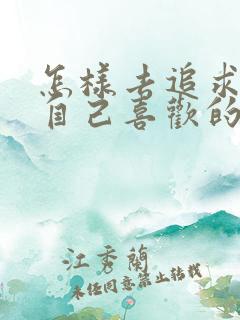 怎樣去追求
自己喜歡的
江秀蘭
未經同意禁止轉載